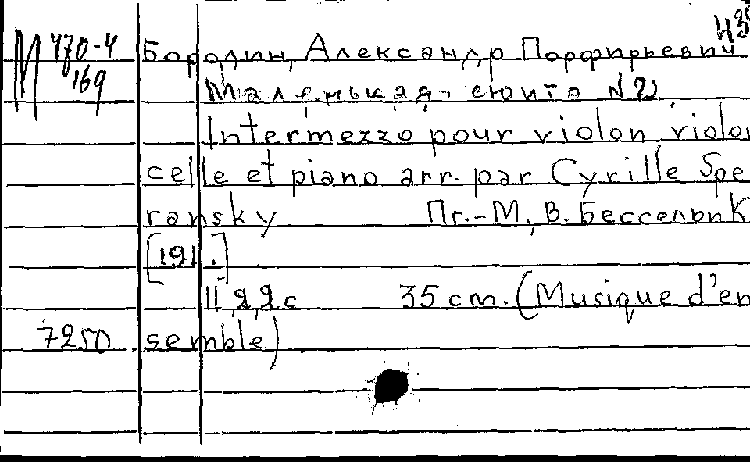 М 470-4
169
Бородин, Александр Порфирьевич
Маленькая сюита №2
Intermezzo pour violon violon
celle et piano arr. par Cyrille Spe
ransky Пг.-М., В. Бессель и К
[191.]
11, 2, 2 с 35 cm. (Musique d'en
7250 semble)